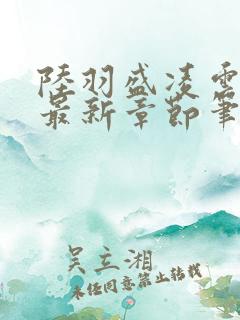 陸羽盛凌雲
最新章節筆
吴立湘
未经同意禁止转载